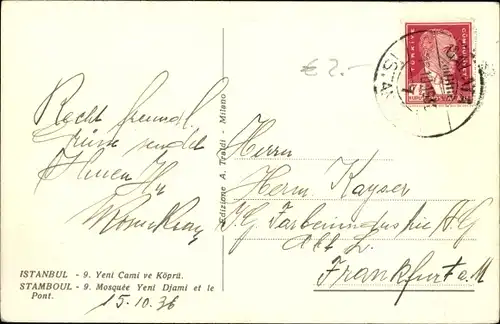 € 2.-
TÜRKİYE CUMHURİYETİ
GALATA
Recht freundl.
Grüße sendet
Ihnen Ihr
Edizione A. Traldi - Milano
Herrn
Herm. Kayser
I.G. Farbenindustrie A.G
Abt L.
Frankfurt a. M
ISTANBUL - 9. Yeni Cami ve Köprü.
STAMBOUL - 9. Mosquée Yeni Djami et le
Pont.
15.10.36